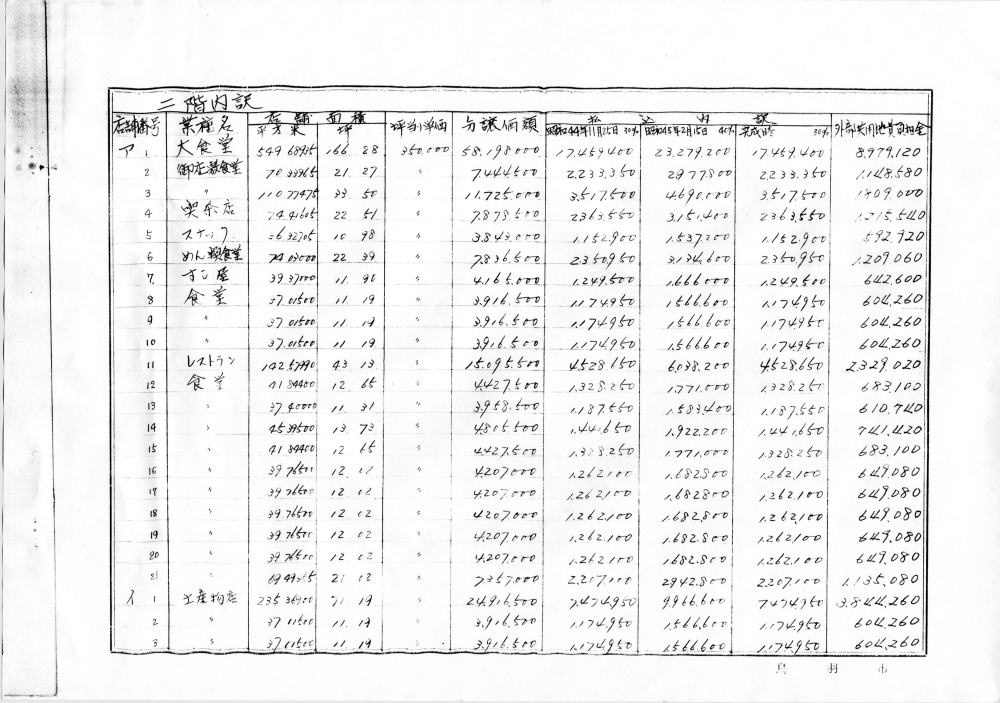 二階内訳
店舗番号 業種名 店舗面積 坪当り単価 与譲価額 払込内訳 外部共用地費負担金
平方米 坪 昭和44年11月25日 30% 昭和45年2月15日 40% 完成時 30%
ア 1 大食堂 549.68925 166 28 350.000 58.198000 17.459400 23.279.200 17459.400 8.979.120
2 21 27 〃 7.444500 2.233.350 2977800 2.233.350 1.148.580
3 〃 110 77475 33 50 〃 11.725.000 3.517500 4.690000 3.517500 1809.000
4 喫茶店 22 51 〃 7.878500 2363.550 3.151.400 2363.550 1.215.540
5 スナック 36 32705 10 98 〃 3.843.000 1.152.900 1.537.200 1.152.900 592.920
6 めん類食堂 22 39 〃 7.836.500 2350950 3.134.600 2.350.950 1.209.060
7 すし屋 39 37000 11 90 〃 4.165.000 1.249.500 1.666000 1.249.500 642.600
8 食堂 37.01500 11 19 〃 3.916.500 1.174950 1566600 1.174950 604.260
9 〃 37.01500 11 19 〃 3.916.500 1.174950 1566.600 1.174950 604.260
10 〃 37.01500 11 19 〃 3.916.500 1.174.950 1.566.600 1.174.950 604.260
11 レストラン 43 13 〃 15.095.500 4528.650 6.038.200 4.528.650 2.329.020
12 食堂 41 84400 12 65 〃 4.427.500 1.328.250 1.771.000 1.328.250 683.100
13 〃 37 40000 11 31 〃 3.958.500 1.187.550 1.583.400 1.187.550 610.740
14 〃 45 39500 13 73 〃 4.805.500 1.441.650 1.922.200 1.441.650 741.420
15 〃 41 84400 12 65 〃 4.427.500 1.328.250 1.771.000 1.328.250 683.100
16 〃 39 76500 12 02 〃 4.207000 1.262.100 1.682800 1.262.100 649.080
17 〃 39.76500 12 02 〃 4.207.000 1.262.100 1.682800 1.262.100 649.080
18 〃 39.76500 12 02 〃 4207.000 1.262.100 1.682.800 1.262.100 649.080
19 〃 39 76500 12 02 〃 4.207.000 1.262.100 1.682.800 1.262.100 649.080
20 〃 39 76500 12 02 〃 4.207.000 1.262.100 1.682.800 1.262.100 649.080
21 〃 〃 7.357.000 2.207.100 2942.800 2.207.100 1.135.080
イ 1 土産物店 235 36900 71 19 〃 24.916.500 7.474.950 9.966.600 7.474.950 3.844.260
2 〃 37 01500 11 19 〃 3.916.500 1.174.950 1.566.600 1.174.950 604.260
3 〃 37 01500 11 19 〃 3.916.500 1.174.950 1.566.600 1.174.950 604.260
鳥羽市